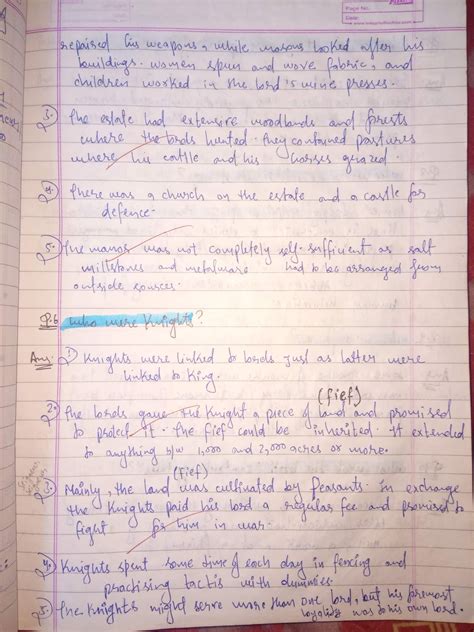 Page No.
Date
repaired his weapons, while masons looked after his
buildings. women spun and wove fabric, and
children worked in the lord's wine presses.
3.) The estate had extensive woodlands and forests
where the lords hunted. they contained pastures
where his cattle and his horses grazed.
4.) There was a church on the estate and a castle for
defence.
5.) The manor was not completely self-sufficient as salt
millstones and metalware had to be arranged from
outside sources.
Q.6 Who were Knights?
Ans. 1) Knights were linked to lords just as latter were
linked to King.
(fief)
2.) The lords gave the Knight a piece of land and promised
to protect it. The fief could be inherited. It extended
to anything b/w 1,000 and 2,000 acres or more.
(fief)
3.) Mainly, the land was cultivated by peasants. in exchange
the Knights paid his lord a regular fee and promised to
fight for him in war.
4.) Knights spent some time of each day in fencing and
practising tactis with dummies.
5.) The Knights might serve more than one lord, but his foremost
loyality was to his own lord.